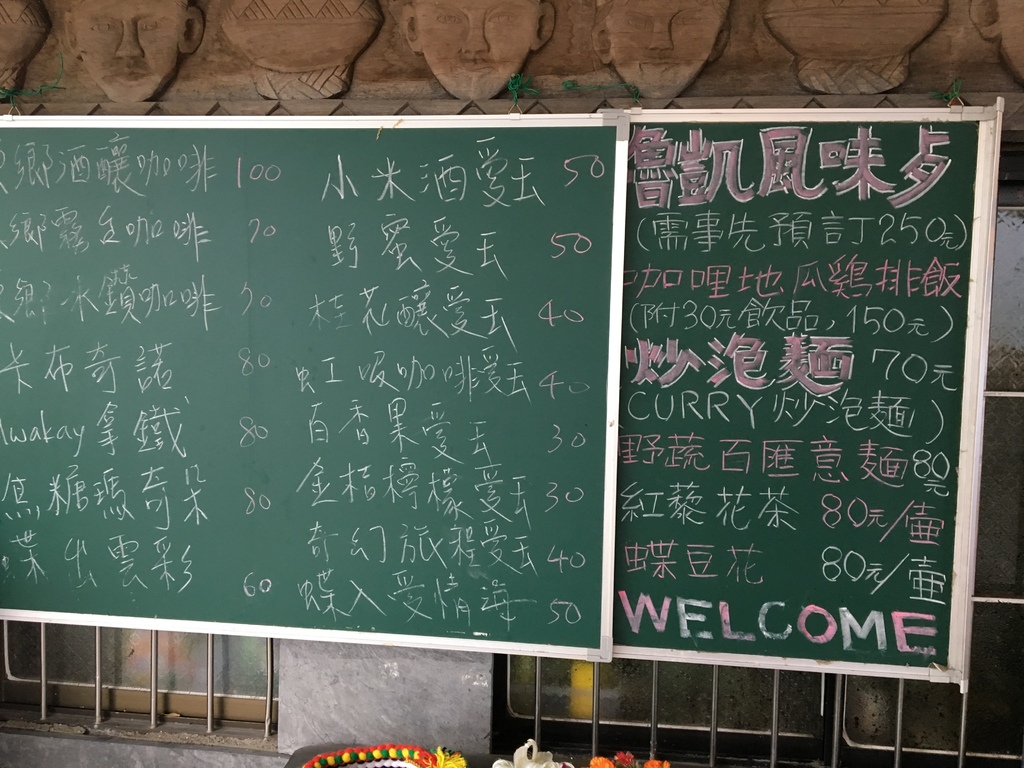 鄉酒釀咖啡 100
鄉霧 咖啡 70
鄉冰鑽咖啡 70
卡布奇諾 80
wakay拿鐵 80
焦糖瑪奇朵 80
蝶 出雲彩 60
小米酒愛玉 50
野蜜愛玉 50
桂花釀愛玉 40
虹吸咖啡愛玉 40
百香果愛玉 30
金桔檸檬愛玉 30
奇幻旅程愛玉 40
蝶入愛情海 50
魯凱風味
(需事先預訂250元)
咖哩地瓜雞排飯
(附30元飲品,150元)
炒泡麵 70元
(CURRY炒泡麵)
野蔬百匯意麵80元
紅藜花茶 80元/壺
蝶豆花 80元/壺
WELCOME